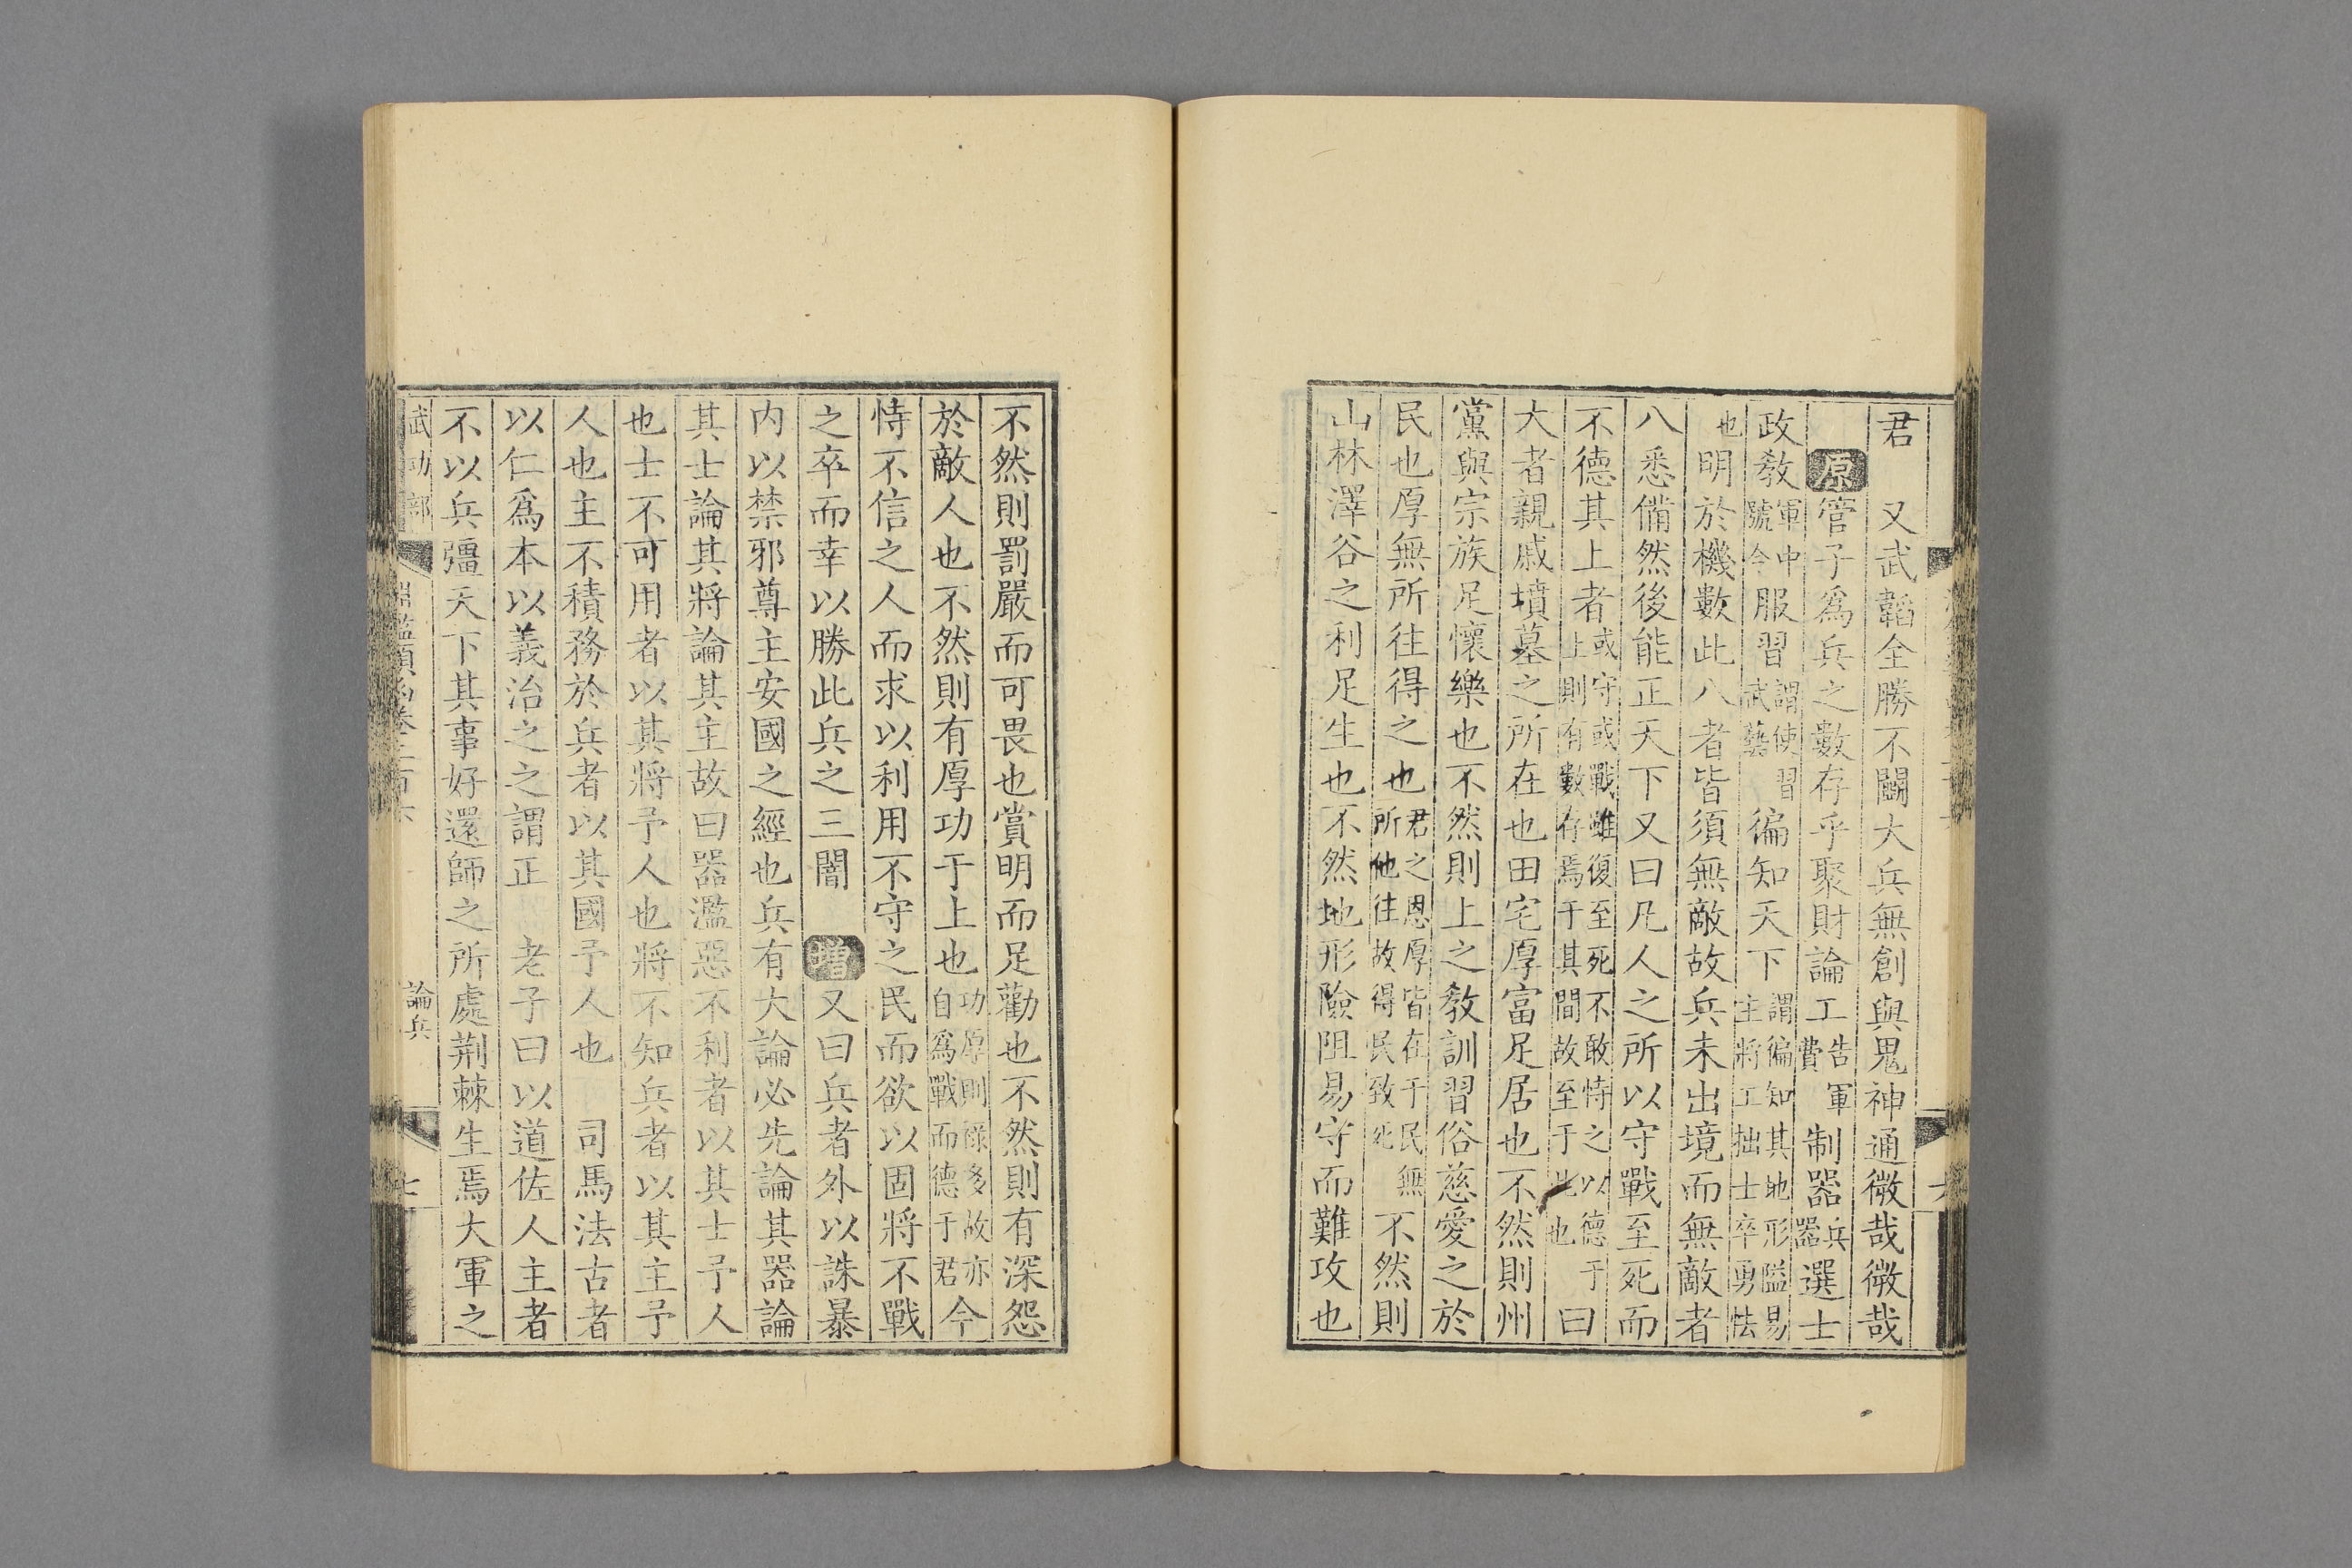 君　又武韜全勝不鬭大兵無創與鬼神通微哉微哉
原管子爲兵之數存乎聚財論工告軍費制器兵器選士
政敎軍中號令服習謂使習武藝徧知天下謂徧知其地形隘易主將工拙士卒勇怯
也明於機數此八者皆須無敵故兵未出境而無敵者
八悉備然後能正天下又曰凡人之所以守戰至死而
不德其上者或守或戰雖復至死不敢恃之以德于上則有數存焉于其間故至于此也曰
大者親戚墳墓之所在也田宅厚富足居也不然則州
黨與宗族足懷樂也不然則上之敎訓習俗慈愛之於
民也厚無所往得之也君之恩厚皆在于民無所他往故得民致死不然則
山林澤谷之利足生也不然地形險阻易守而難攻也
不然則罰嚴而可畏也賞明而足勸也不然則有深怨
於敵人也不然則有厚功于上也功厚則祿多故亦自爲戰而德于君今
恃不信之人而求以利用不守之民而欲以固將不戰
之卒而幸以勝此兵之三闇　增又曰兵者外以誅暴
内以禁邪尊主安國之經也兵有大論必先論其器論
其士論其將論其主故曰器濫惡不利者以其士予人
也士不可用者以其將予人也將不知兵者以其主予
人也主不積務於兵者以其國予人也　司馬法古者
以仁爲本以義治之之謂正　老子曰以道佐人主者
不以兵彊天下其事好還師之所處荆棘生焉大軍之
武功部
論兵
七